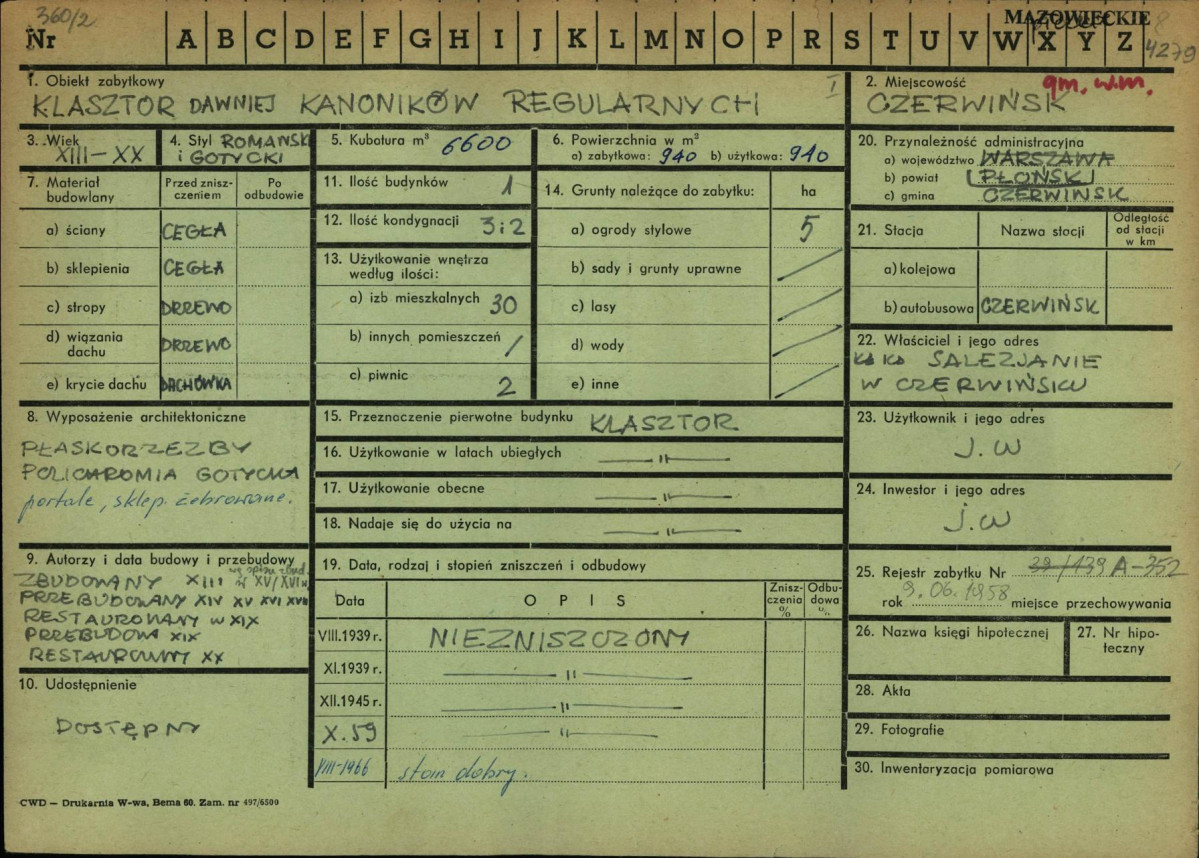 360/2
Nr A B C D E F G H I J K L M N O P R S T U V W X Y Z
MAZOWIECKIE
4279
1. Obiekt zabytkowy
KLASZTOR DAWNIEJ KANONIKÓW REGULARNYCH I
2. Miejscowość gm. w.m.
CZERWIŃSK
3. Wiek
XIII–XX
4. Styl ROMAŃSKI
i GOTYCKI
5. Kubatura m³ 6600
6. Powierzchnia w m²
a) zabytkowa: 940 b) użytkowa: 940
20. Przynależność administracyjna
a) województwo WARSZAWA
b) powiat PŁOŃSK
c) gmina CZERWIŃSK
7. Materiał budowlany
Przed zniszczeniem
Po odbudowie
a) ściany CEGŁA
b) sklepienia CEGŁA
c) stropy DRZEWO
d) wiązania dachu DRZEWO
e) krycie dachu DACHÓWKA
11. Ilość budynków 1
12. Ilość kondygnacji 3 i 2
13. Użytkowanie wnętrza
według ilości:
a) izb mieszkalnych 30
b) innych pomieszczeń /
c) piwnic 2
14. Grunty należące do zabytku: ha
a) ogrody stylowe 5
b) sady i grunty uprawne /
c) lasy /
d) wody /
e) inne /
21. Stacja
Nazwa stacji
Odległość od stacji w km
a) kolejowa
b) autobusowa CZERWIŃSK
22. Właściciel i jego adres
KS KS SALEZJANIE
W CZERWIŃSKU
8. Wyposażenie architektoniczne
PŁASKORZEZBY
POLICHROMIA GOTYCKA
portale, sklep. żebrowane.
15. Przeznaczenie pierwotne budynku KLASZTOR
16. Użytkowanie w latach ubiegłych — " —
17. Użytkowanie obecne — " —
18. Nadaje się do użycia na — " —
23. Użytkownik i jego adres
J. W
24. Inwestor i jego adres
J. W
9. Autorzy i data budowy i przebudowy
ZBUDOWANY XIII w XV/XVI w
PRZEBUDOWANY XIV XV XVI XVII
RESTAUROWANY W XIX
PRZEBUDOWA XIX
RESTAUROWANY XX
10. Udostępnienie
DOSTĘPNY
19. Data, rodzaj i stopień zniszczeń i odbudowy
Data
OPIS
Zniszczenia %
Odbudowa %
VIII.1939 r. NIEZNISZCZONY
XI.1939 r. — " —
XII.1945 r. — " —
X.59 — " —
VIII-1966 stan dobry.
25. Rejestr zabytku Nr 39/139 A-352
rok 9.06.1958 miejsce przechowywania
26. Nazwa księgi hipotecznej
27. Nr hipoteczny
28. Akta
29. Fotografie
30. Inwentaryzacja pomiarowa
CWD — Drukarnia W-wa, Bema 60. Zam. nr 497/6500